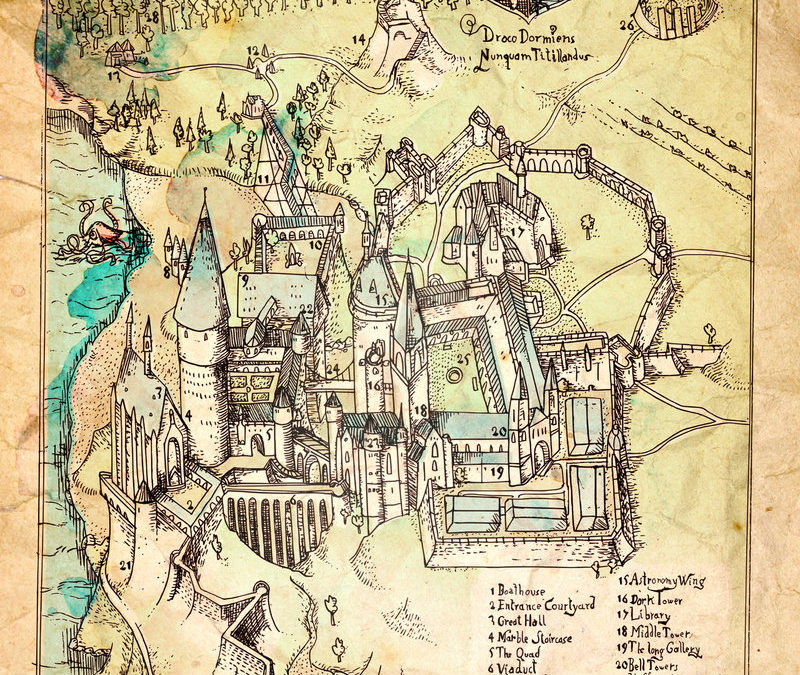 28
26
Draco Dormiens
Nunquam Titillandus
14
12
13
11
10
17
8
9
15
22
3
24
25
16
4
18
20
19
2
21
1 Boathouse
2 Entrance Courtyard
3 Great Hall
4 Marble Staircase
5 The Quad
6 Viaduct
15 Astronomy Wing
16 Dark Tower
17 Library
18 Middle Tower
19 The long Gallery
20 Bell Towers